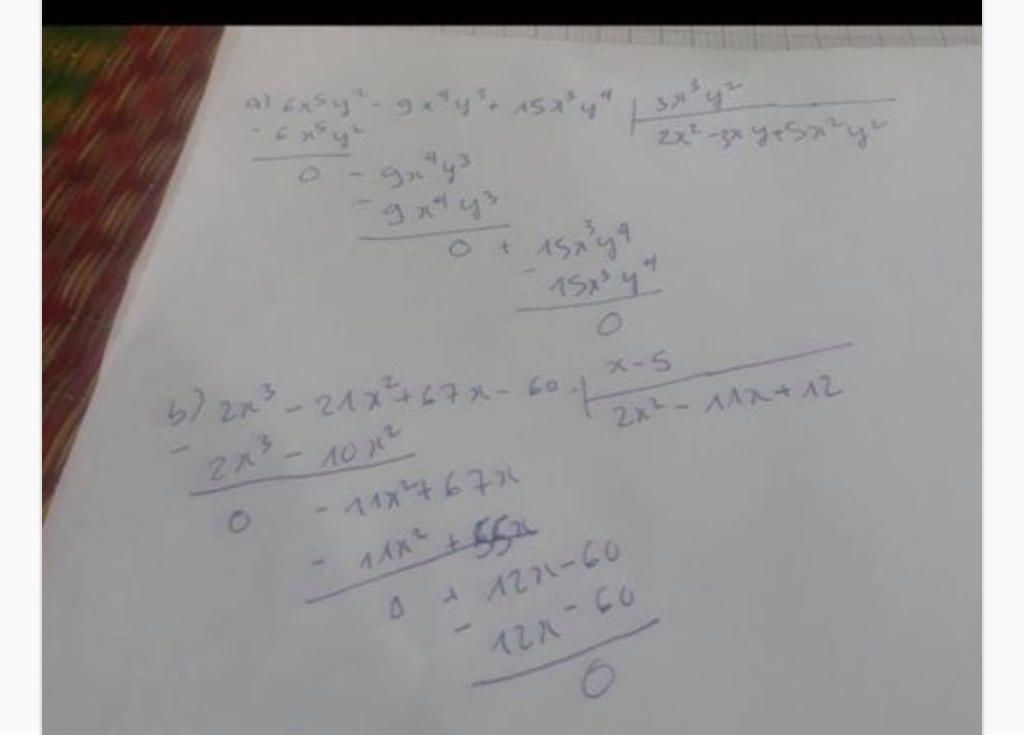 a) 6x⁵y² - 9x⁴y³ + 15x³y⁴ | 3x³y²
- 6x⁵y² 2x² - 3xy + 5x²y²
0 - 9x⁴y³
- 9x⁴y³
0 + 15x³y⁴
- 15x³y⁴
0
b) 2x³ - 21x² + 67x - 60 | x - 5
- 2x³ - 10x² 2x² - 11x + 12
0 - 11x² + 67x
- 11x² + 55x
0 + 12x - 60
- 12x - 60
0